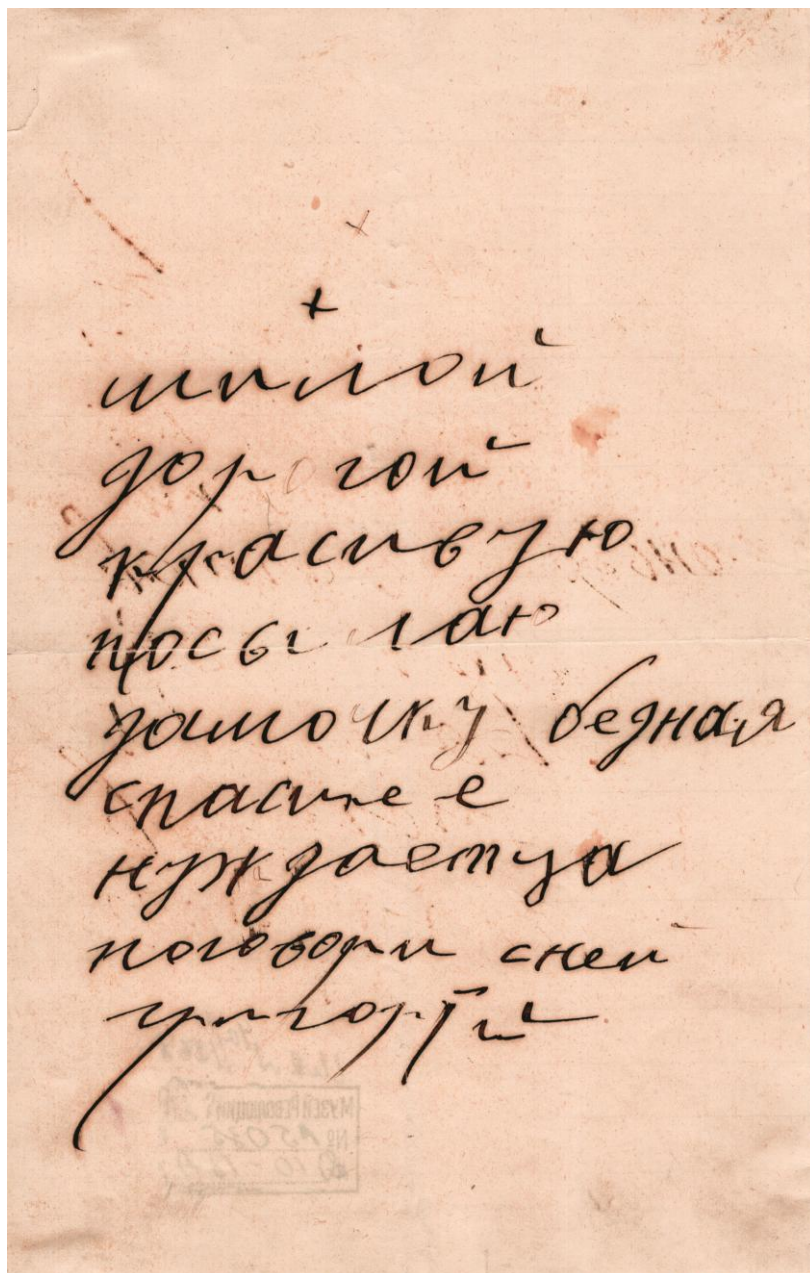 +
милой
дорогой
красивую
посылаю
дамочку бедная
спаси ее
нуждаетца
поговори сней
григорїй